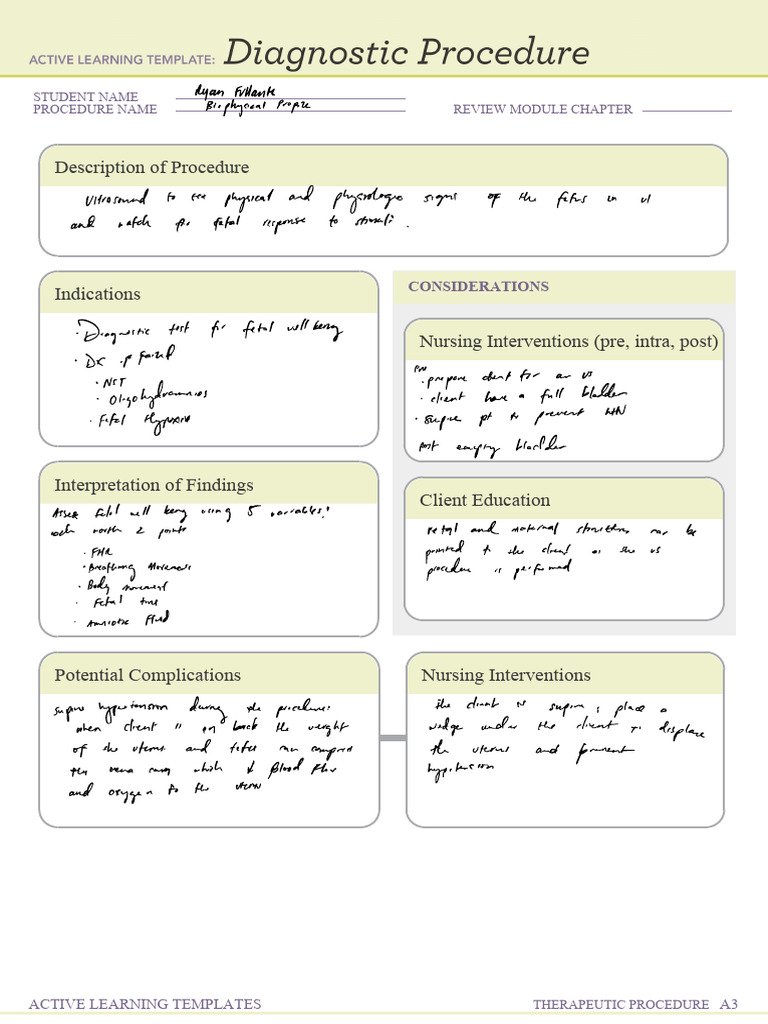 ACTIVE LEARNING TEMPLATE: Diagnostic Procedure
STUDENT NAME Ryan
PROCEDURE NAME Biophysical Profile
REVIEW MODULE CHAPTER
Description of Procedure
Ultrasound to see physical and physiologic signs of the fetus in
and watch for fetal response to stimuli.
Indications
· Diagnostic test for fetal well being
· Dx if failed
· NST
· Oligohydramnios
· Fetal Hypoxia
CONSIDERATIONS
Nursing Interventions (pre, intra, post)
Pre
· prepare client for an US
· client have a full bladder
· supine pt to prevent
post empty bladder
Interpretation of Findings
Assess fetal well being using 5 variables:
each worth 2 points
· FHR
· Breathing Movements
· Body movement
· Fetal tone
· Amniotic Fluid
Client Education
fetal and maternal structures may be
pointed to the client as the US
procedure is performed
Potential Complications
supine hypotension during the procedure:
when client is on back the weight
of the uterus and fetus can compress
the vena cava which ↓ Blood flow
and oxygen to the uterus
Nursing Interventions
the client is supine; place a
wedge under the client to displace
the uterus and prevent
hypotension
ACTIVE LEARNING TEMPLATES
THERAPEUTIC PROCEDURE A3